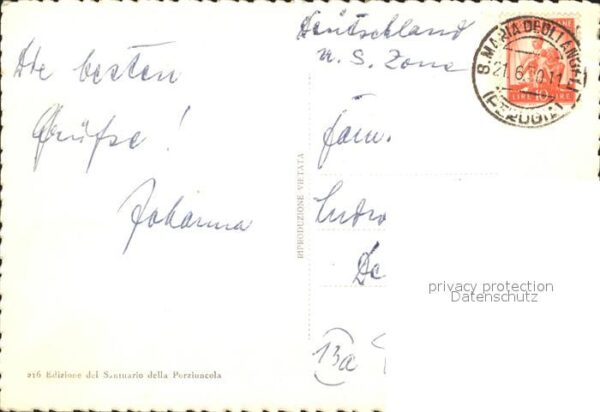 Die besten
Grüße!
Johanna
216 Edizione del Santuario della Porziuncola
RIPRODUZIONE VIETATA
Deutschland
U. S. Zone
Fam.
13a
S. MARIA DEGLI ANGELI
21.6.50.11
(PERUGIA)
LIRE 10 LIRE
privacy protection
Datenschutz